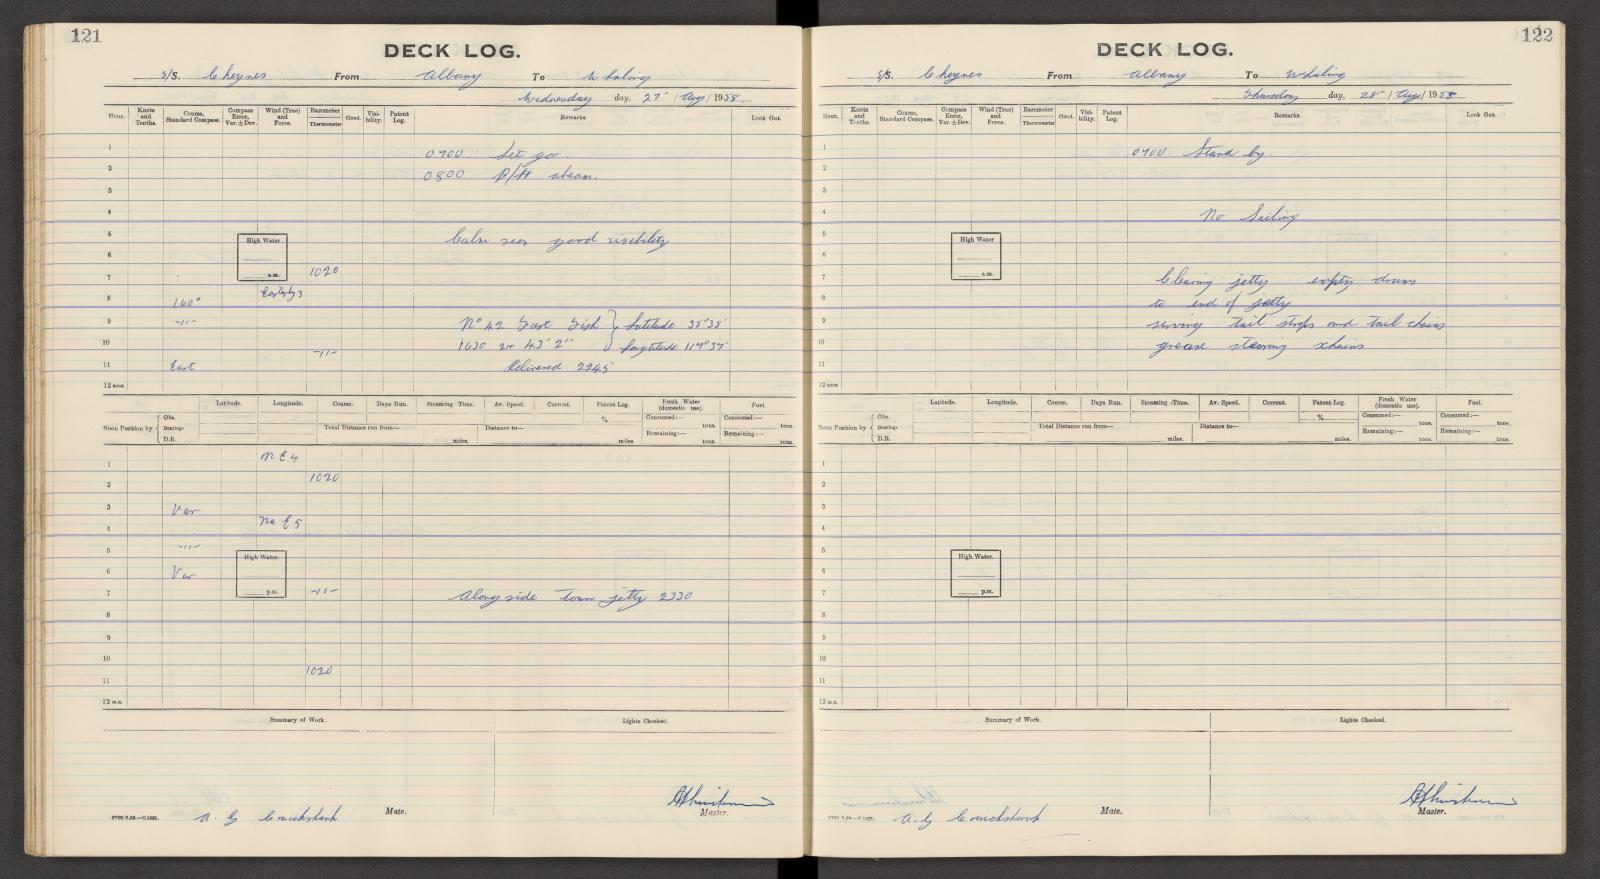 121
DECK LOG.
S/S. Cheynes From Albany To Whaling
Wednesday day, 27 / Aug / 1958
Hour. Knots and Tenths. Course, Standard Compass. Compass Error, Var. ± Dev. Wind (True) and Force. Barometer Thermometer Cloud. Visibility. Patent Log. Remarks. Look Out.
1
0700 Let go.
2 0800 abeam.
3
4
5 Calm sea good visibility
High Water
6
a.m.
7 1020
Easterly 3
8 160°
9 -11- No 42 Fast Fish } Latitude 35°38'
10 1630 43' 2"
-11-
11 East Delivered 2245
12 noon
Latitude. Longitude. Course. Days Run. Steaming Time. Av. Speed. Current. Patent Log. Fresh Water (domestic use). Fuel.
Noon Position by { Obs. Bearings D.R. % Consumed:— tons. Consumed:—
Total Distance run from— miles. Distance to— miles. Remaining:— tons. Remaining:— tons.
1 N E 4
2 1020
3 Var
4 E 5
5 -11-
High Water.
6 Var
p.m.
7 -11- Alongside town jetty 2330
8
9
10
1020
11
12 m.n.
Summary of Work. Lights Checked.
A. G Cruickshank Mate. Master.
122
DECK LOG.
S/S. Cheynes From Albany To Whaling
Thursday day, 28 / Aug / 1958
Hour. Knots and Tenths. Course, Standard Compass. Compass Error, Var. ± Dev. Wind (True) and Force. Barometer Thermometer Cloud. Visibility. Patent Log. Remarks. Look Out.
1 0700 Stand by.
2
3
4 No Sailing
5
High Water
6
a.m.
7 Clearing jetty empty drums
8 to end of jetty
9 serving tail strops and tail chains
10 grease steering chains
11
12 noon
Latitude. Longitude. Course. Days Run. Steaming Time. Av. Speed. Current. Patent Log. Fresh Water (domestic use). Fuel.
Noon Position by { Obs. Bearings D.R. % Consumed:— tons. Consumed:— tons.
Total Distance run from— miles. Distance to— miles. Remaining:— tons. Remaining:— tons.
1
2
3
4
5
High Water.
6
p.m.
7
8
9
10
11
12 m.n.
Summary of Work. Lights Checked.
A. G Cruickshank Mate. Master.